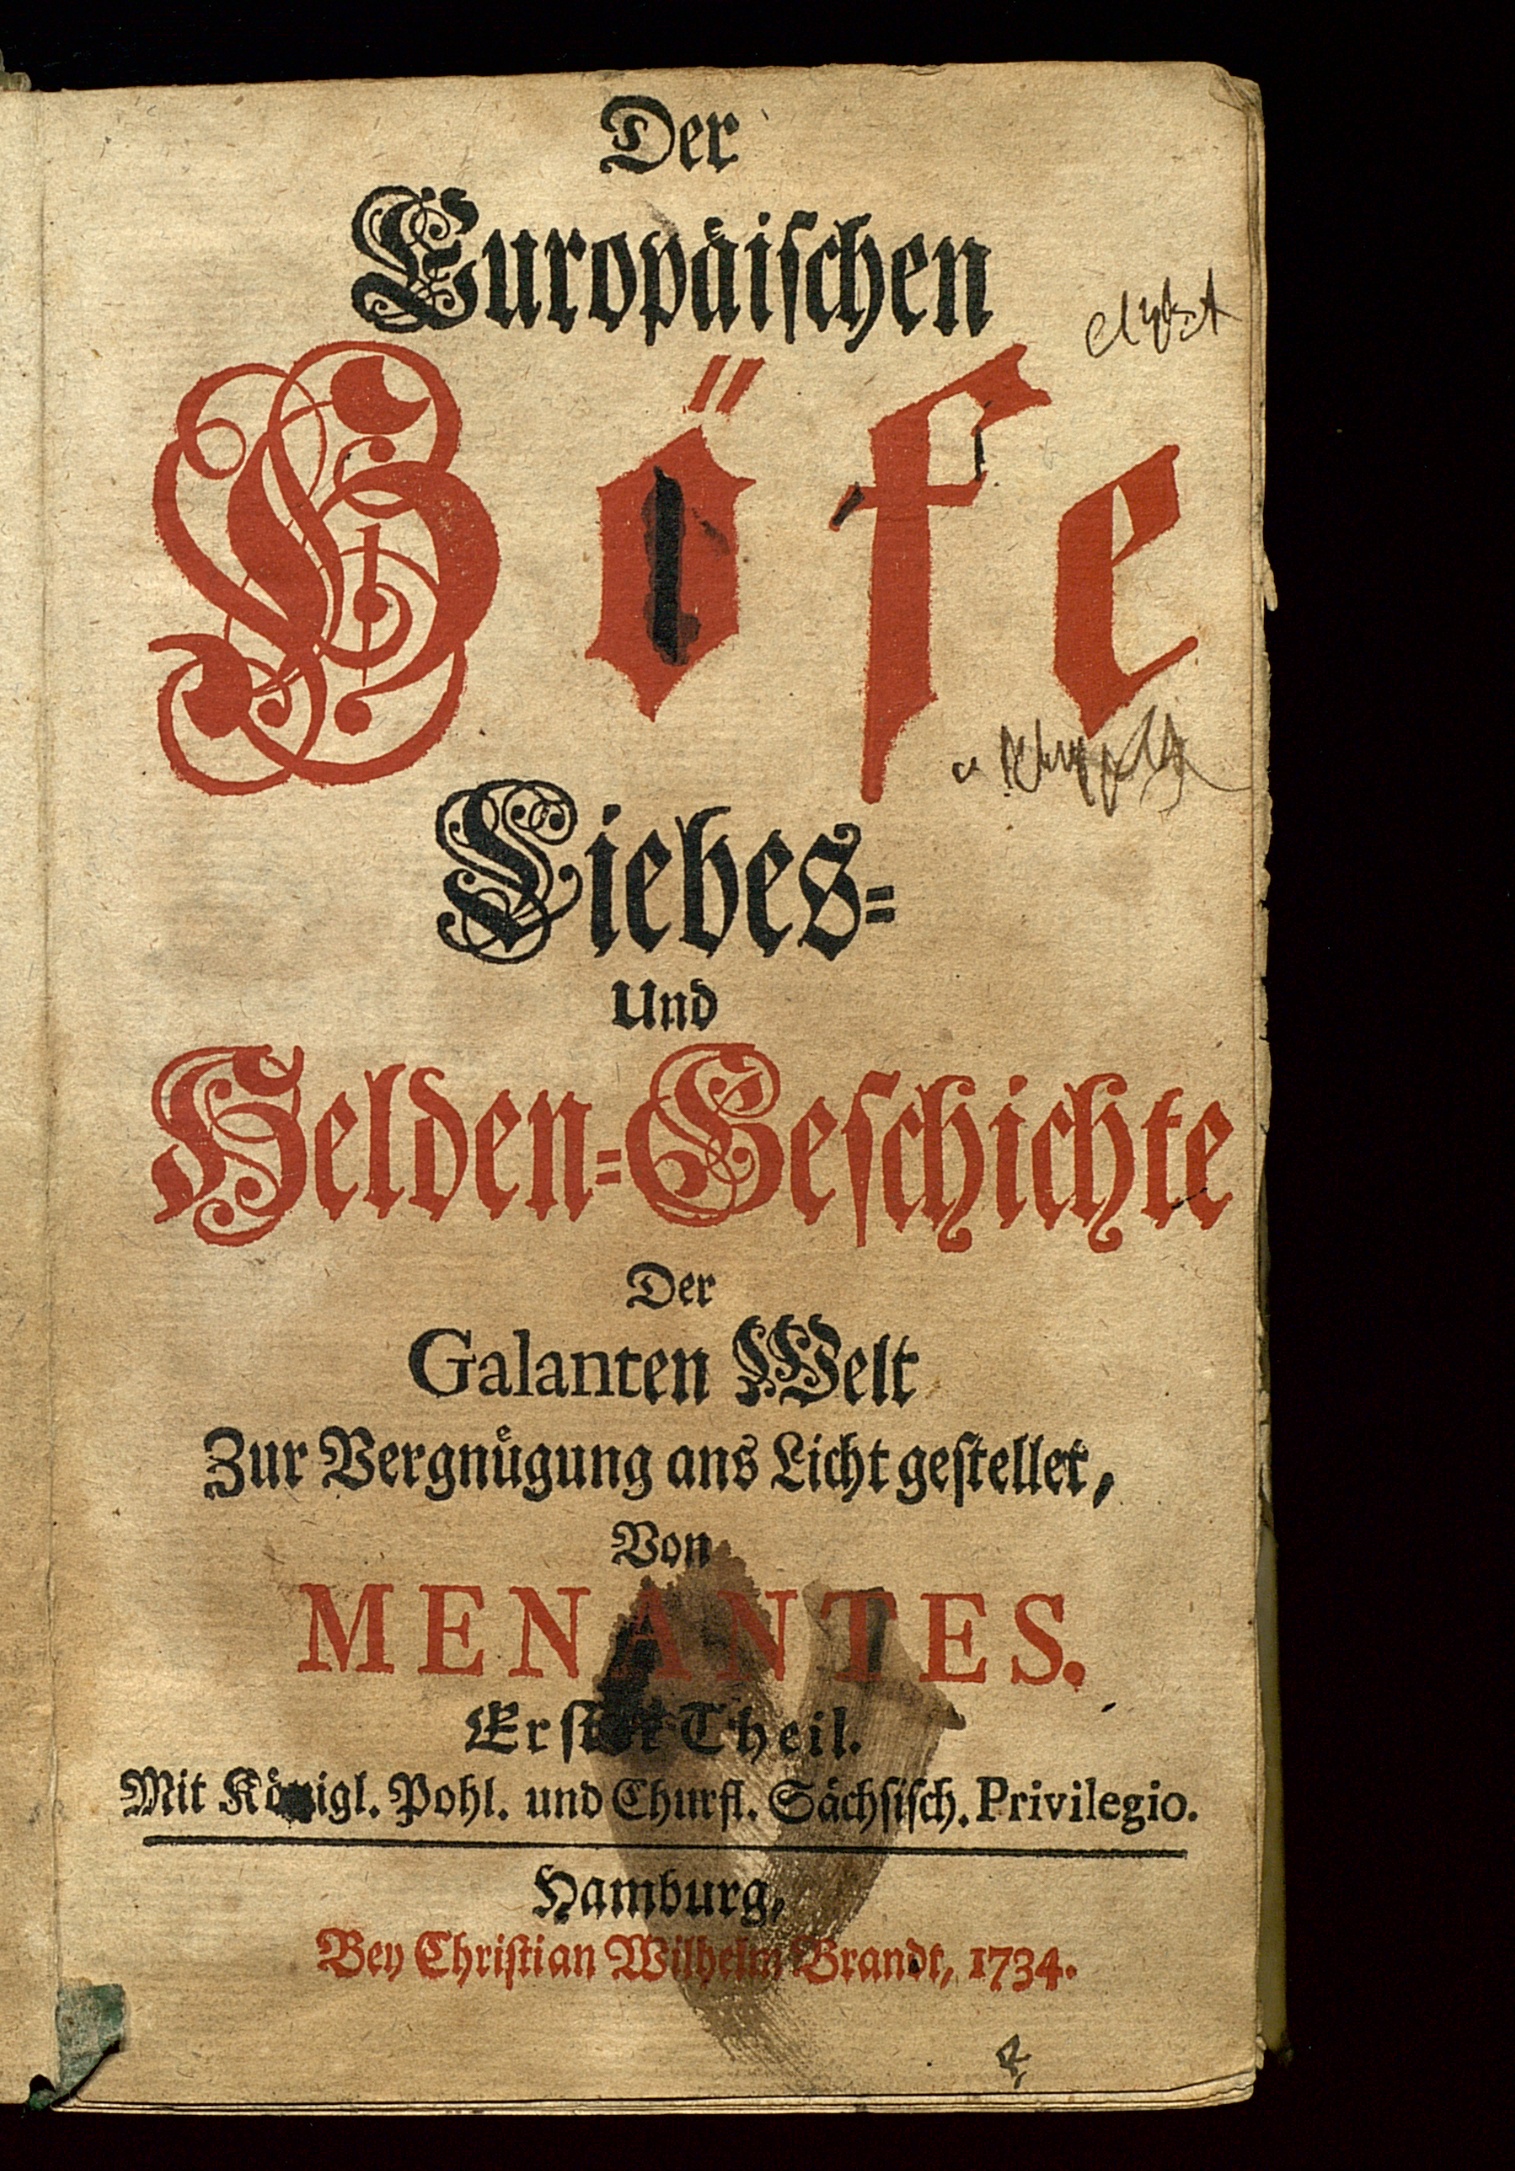 Der
Europäischen
Höfe
Liebes-
Und
Helden-Geschichte
Der
Galanten Welt
Zur Vergnügung ans Licht gestellet,
Von
MENANTES.
Erster Theil.
Mit Königl. Pohl. und Churfl. Sächsisch. Privilegio.
Hamburg,
Bey Christian Wilhelm Brandt, 1734.